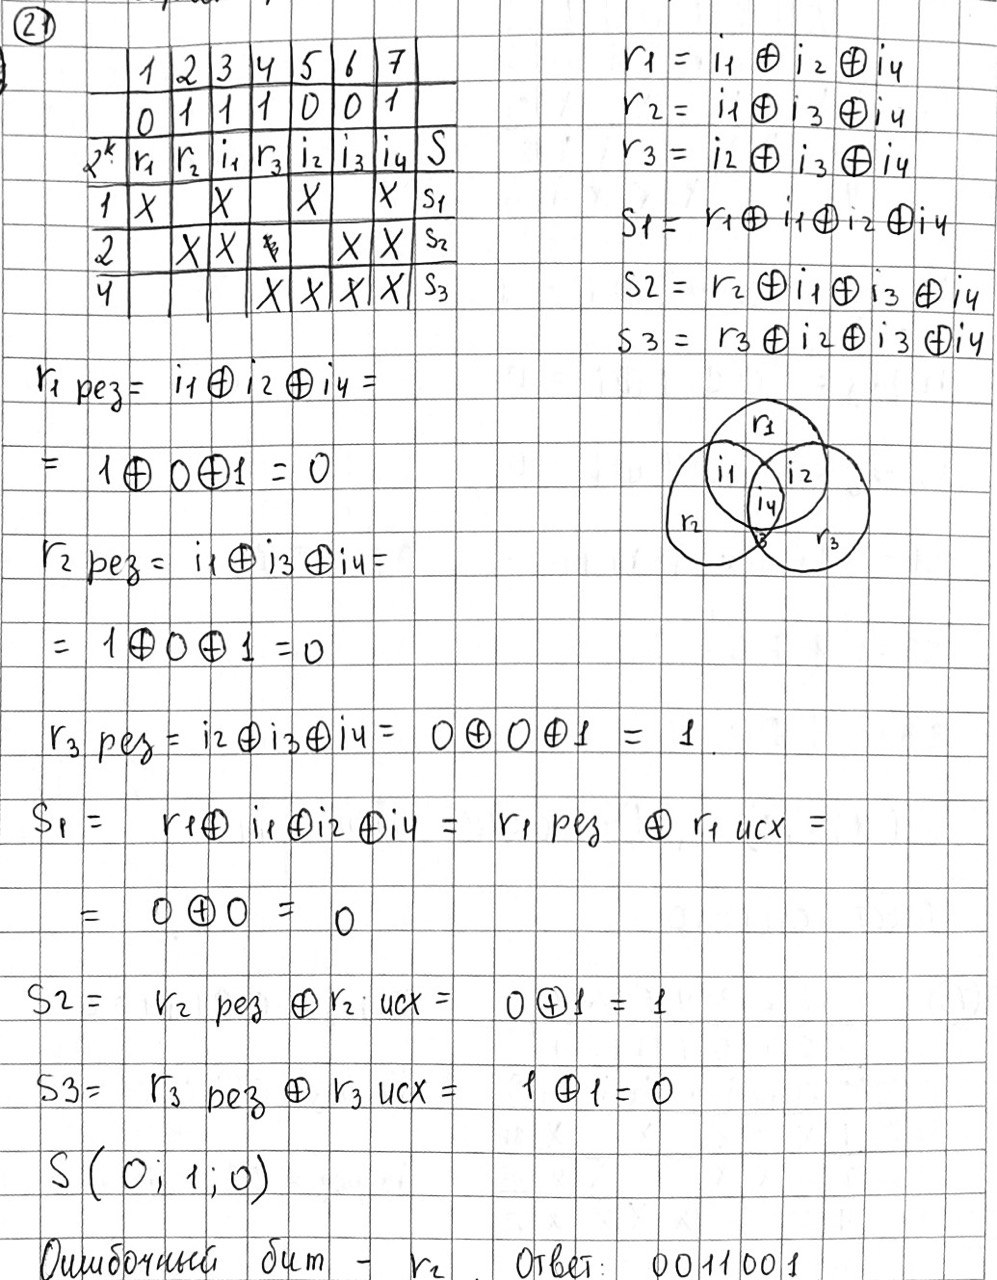 21
1 2 3 4 5 6 7
0 1 1 1 0 0 1
2ᵏ r₁ r₂ i₁ r₃ i₂ i₃ i₄ S
1 X X X X S₁
2 X X X X S₂
4 X X X X S₃
r1 = i1 ⊕ i2 ⊕ i4
r2 = i1 ⊕ i3 ⊕ i4
r3 = i2 ⊕ i3 ⊕ i4
S1 = r1 ⊕ i1 ⊕ i2 ⊕ i4
S2 = r2 ⊕ i1 ⊕ i3 ⊕ i4
S3 = r3 ⊕ i2 ⊕ i3 ⊕ i4
r1
i1 i2
i4
r2 i3 r3
r1 рез = i1 ⊕ i2 ⊕ i4 =
= 1 ⊕ 0 ⊕ 1 = 0
r2 рез = i1 ⊕ i3 ⊕ i4 =
= 1 ⊕ 0 ⊕ 1 = 0
r3 рез = i2 ⊕ i3 ⊕ i4 = 0 ⊕ 0 ⊕ 1 = 1.
S1 = r1 ⊕ i1 ⊕ i2 ⊕ i4 = r1 рез ⊕ r1 исх =
= 0 ⊕ 0 = 0
S2 = r2 рез ⊕ r2 исх = 0 ⊕ 1 = 1
S3 = r3 рез ⊕ r3 исх = 1 ⊕ 1 = 0
S (0; 1; 0)
Ошибочный бит - r2. Ответ: 0011001